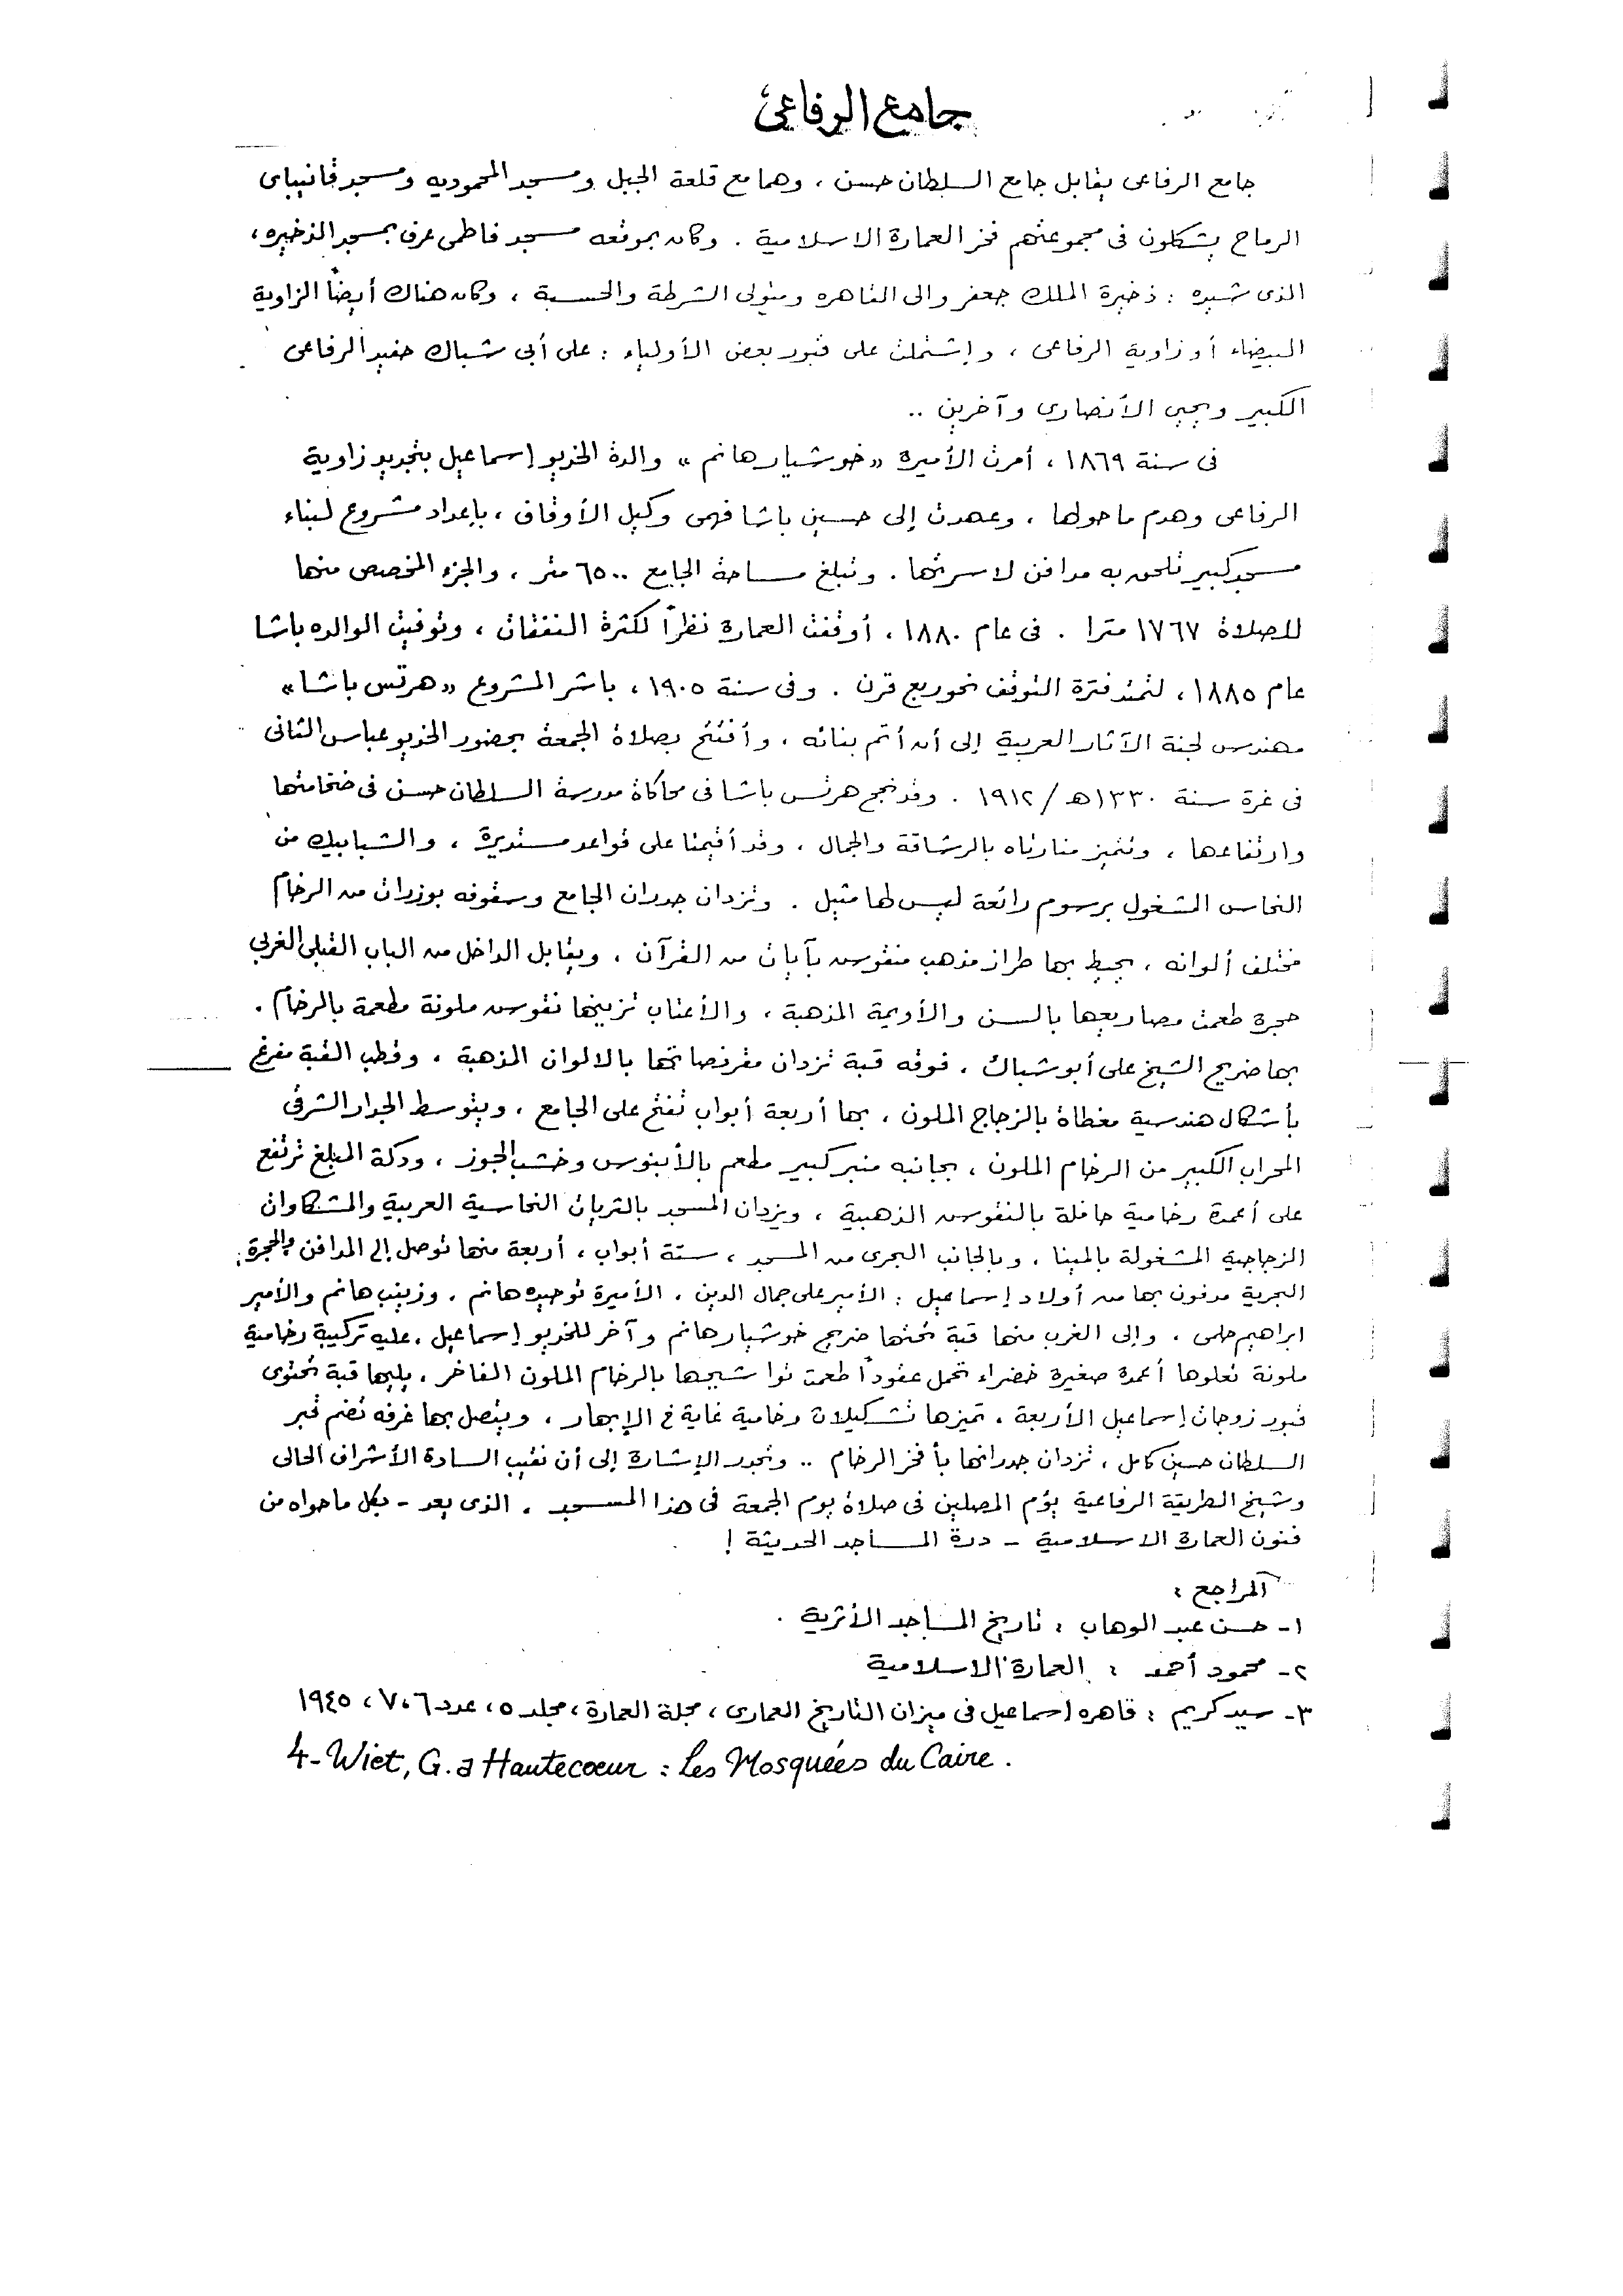 جامع الرفاعى
جامع الرفاعى يقابل جامع السلطان حسن ، وهما مع قلعة الجبل ومسجد المحموديه ومسجد قانيباى
الرماح يشكلون فى مجموعتهم فخر العمارة الاسلامية . وكان بموقعه مسجد فاطمى عرف بمسجد الذخيره ،
الذى شيده : ذخيرة الملك جعفر والى القاهره ومتولى الشرطة والحسبة ، وكان هناك أيضاً الزاوية
البيضاء أو زاوية الرفاعى ، وإشتملت على قبور بعض الأولياء : على أبى شباك حفيد الرفاعى
الكبير ويحيى الأنصارى وآخرين ..
فى سنة ١٨٦٩ ، أمرت الأميرة «خوشيار هانم» والدة الخديو إسماعيل بتجديد زاوية
الرفاعى وهدم ما حولها ، وعهدت إلى حسين باشا فهمى وكيل الأوقاف ، بإعداد مشروع لبناء
مسجد كبير تلحق به مدافن لاسرتها . وتبلغ مساحة الجامع ٦٥٠٠ متر ، والجزء المخصص منها
للصلاة ١٧٦٧ مترا . فى عام ١٨٨٠ ، أوقفت العمارة نظراً لكثرة النفقات ، وتوفيت الوالده باشا
عام ١٨٨٥ ، لتمتد فترة التوقف نحو ربع قرن . وفى سنة ١٩٠٥ ، باشر المشروع «هرتس باشا»
مهندس لجنة الآثار العربية إلى أن أتم بنائه ، وأفتتح بصلاة الجمعة بحضور الخديو عباس الثانى
فى غرة سنة ١٣٣٠هـ/١٩١٢ . وقد نجح هرتس باشا فى محاكاة مدرسة السلطان حسن فى ضخامتها
وارتفاعها ، وتتميز منارتاه بالرشاقة والجمال ، وقد أقيمتا على قواعد مستديرة ، والشبابيك من
النحاس المشغول برسوم رائعة ليس لها مثيل . وتزدان جدران الجامع وسقوفه بوزرات من الرخام
مختلف ألوانه ، يحيط بها طراز مذهب منقوس بآيات من القرآن ، ويقابل الداخل من الباب القبلى الغربى
حجرة طعمت مصاريعها بالسن والأويمة المذهبة ، والأعتاب تزينها نقوس ملونة مطعمة بالرخام .
بها ضريح الشيخ على أبو شباك ، فوقه قبة تزدان مقرنصاتها بالالوان المذهبة ، وقطب القبة مفرغ
بأشكال هندسية مغطاة بالزجاج الملون ، بها أربعة أبواب تفتح على الجامع ، ويتوسط الجدار الشرقى
المحراب الكبير من الرخام الملون ، بجانبه منبر كبير مطعم بالأبنوس وخشب الجوز ، ودكة المبلغ ترتفع
على أعمدة رخامية حافلة بالنقوس الذهبية ، ويزدان المسجد بالثريات النحاسية العربية والمشكاوات
الزجاجية المشغولة بالمينا ، وبالجانب البحرى من المسجد ، ستة أبواب ، أربعة منها توصل إلى المدافن والحجرة
البحرية مدفون بها من أولاد إسماعيل : الأمير على جمال الدين ، الأميرة توحيده هانم ، وزينب هانم والأمير
ابراهيم حلمى ، وإلى الغرب منها قبة تحتها ضريح خوشيار هانم وآخر للخديو إسماعيل ، عليه تركيبة رخامية
ملونة تعلوها أعمدة صغيرة خضراء تحمل عقوداً طعمت تواشيحها بالرخام الملون الفاخر ، يليها قبة تحتوى
قبور زوجات إسماعيل الأربعة ، تميزها تشكيلات رخامية غاية فى الإبهار ، ويتصل بها غرفه تضم قبر
السلطان حسين كامل ، تزدان جدرانها بأفخر الرخام .. وتجدر الإشارة إلى أن نقيب السادة الأشراف الحالى
وشيخ الطريقة الرفاعية يؤم المصلين فى صلاة يوم الجمعة فى هذا المسجد ، الذى يعد - بكل ما حواه من
فنون العمارة الاسلامية - درة المساجد الحديثة !
المراجع :
١- حسن عبد الوهاب : تاريخ المساجد الأثرية .
٢- محمود أحمد : العمارة الاسلامية
٣- سيد كريم : قاهره إسماعيل فى ميزان التاريخ المعمارى ، مجلة العمارة ، مجلد ٥ ، عدد ٦ ، ٧ ، ١٩٤٥
4- Wiet, G. a Hautecœur : Les Mosquées du Caire .